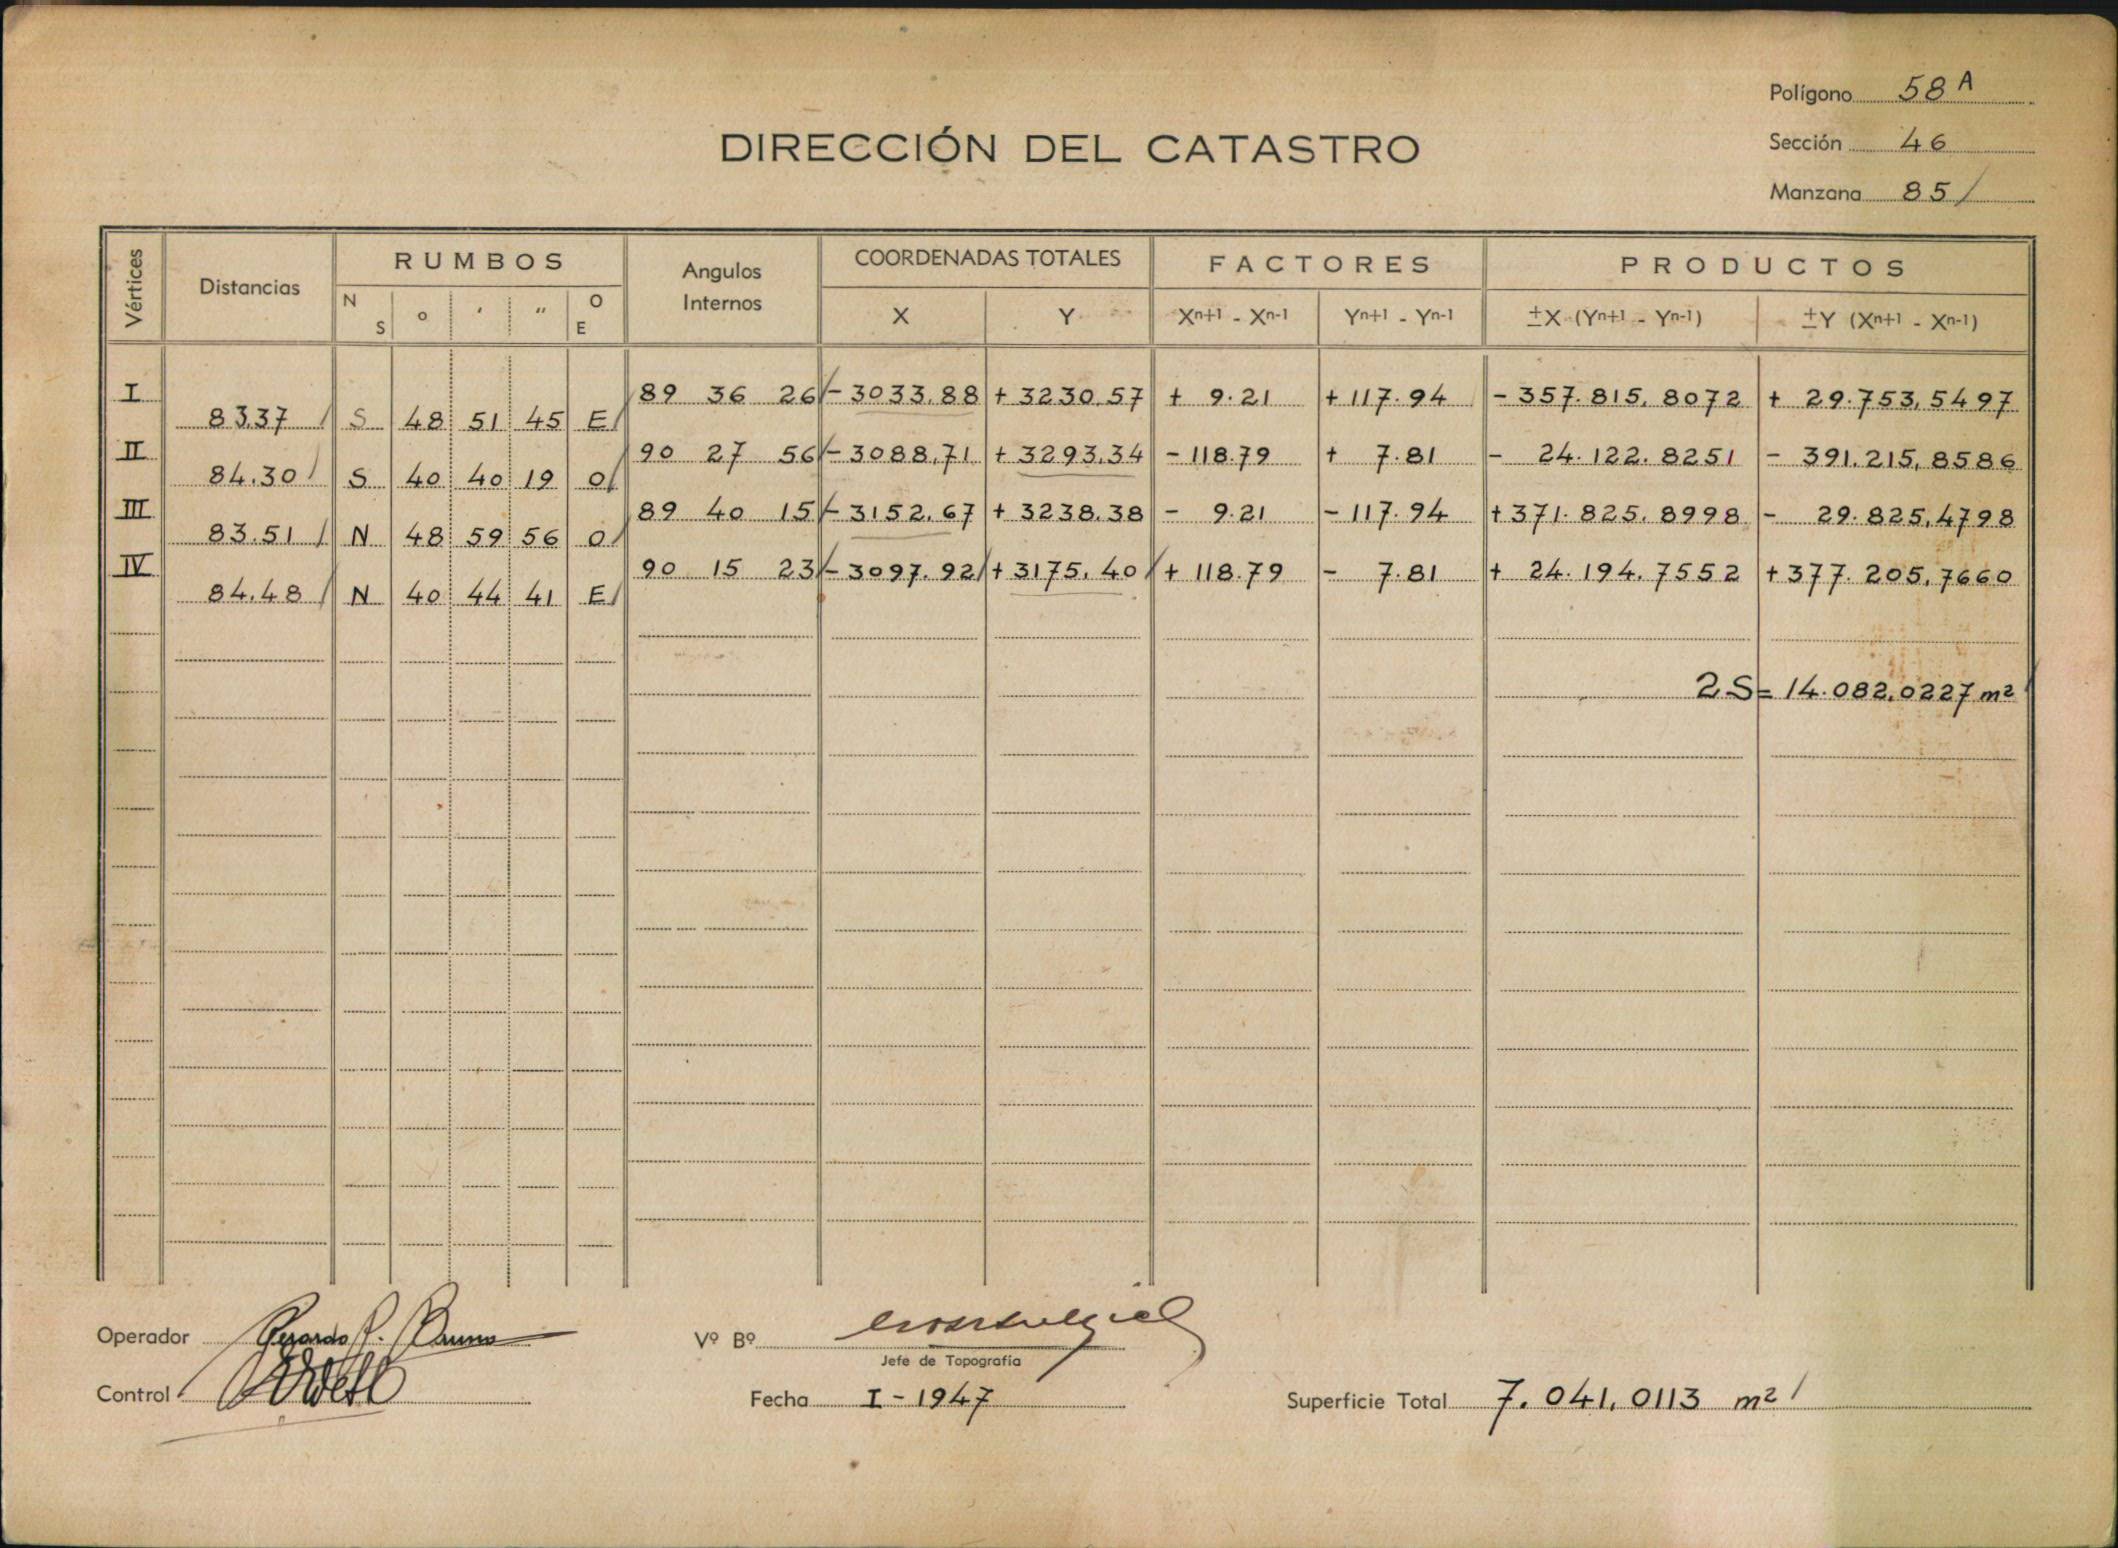 Polígono 58 A
DIRECCIÓN DEL CATASTRO
Sección 46
Manzana 85 /
Vértices Distancias RUMBOS Angulos Internos COORDENADAS TOTALES FACTORES PRODUCTOS
N S o ' " O E X Y Xn+1 - Xn-1 Yn+1 - Yn-1 ±X (Yn+1 - Yn-1) ±Y (Xn+1 - Xn-1)
I 89 36 26 / - 3033.88 + 3230.57 + 9.21 + 117.94 - 357.815,8072 + 29.753,5497
83.37 / S 48 51 45 E /
II 90 27 56 / - 3088,71 + 3293.34 - 118.79 + 7.81 - 24.122.8251 - 391.215,8586
84.30 / S 40 40 19 O /
III 89 40 15 / - 3152.67 + 3238.38 - 9.21 - 117.94 + 371.825.8998 - 29.825,4798
83.51 / N 48 59 56 O /
IV 90 15 23 / - 3097.92 / + 3175.40 / + 118.79 - 7.81 + 24.194.7552 + 377.205,7660
84.48 / N 40 44 41 E /
2S = 14.082.0227 m2 /
Operador Gerardo P. Bruno Vº Bº
Jefe de Topografía
Control Fecha I - 1947 Superficie Total 7.041,0113 m2 /